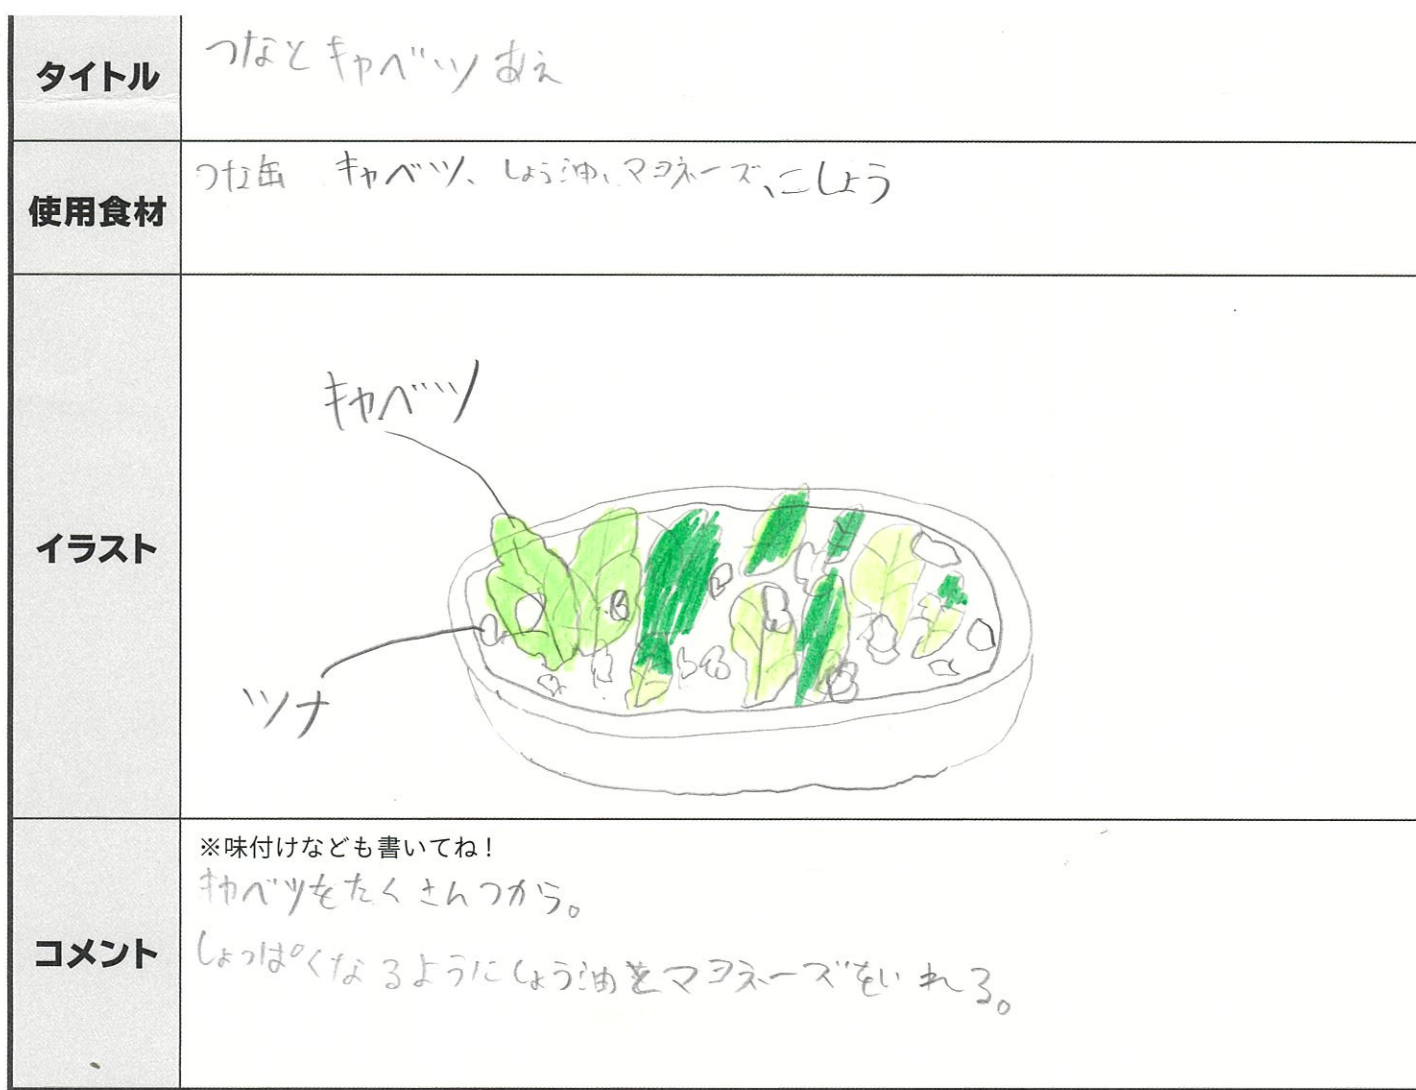 タイトル
つなとキャベツあえ
使用食材
つな缶 キャベツ、しょう油、マヨネーズ、こしょう
イラスト
キャベツ
ツナ
コメント
※味付けなども書いてね！
キャベツをたくさんつかう。
しょっぱくなるようにしょう油とマヨネーズをいれる。